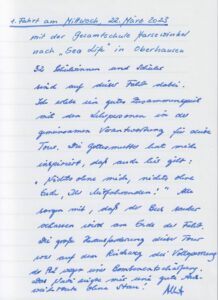 1. Fahrt am Mittwoch, 22. März 2023
mit der Gesamtschule Harsewinkel
nach „Sea Life" in Oberhausen
32 Schülerinnen und Schüler
sind auf dieser Fahrt dabei.
Ich erlebe ein gutes Zusammenspiel
mit den Lehrpersonen in der
gemeinsamen Verantwortung für diese
Tour. Die Gottesmutter hat mich
inspiriert, daß auch hier gilt:
„Nichts ohne mich, nichts ohne
Euch, Ihr Mitfahrenden!" Alle
sorgen mit, daß der Bus sauber
verlassen wird am Ende der Fahrt.
Die große Herausforderung dieser Tour
war auf dem Rückweg die Vollsperrung
der A2 wegen einer Bombenentschärfung.
Das Navi zeigte mir eine gute
ohne Stau!